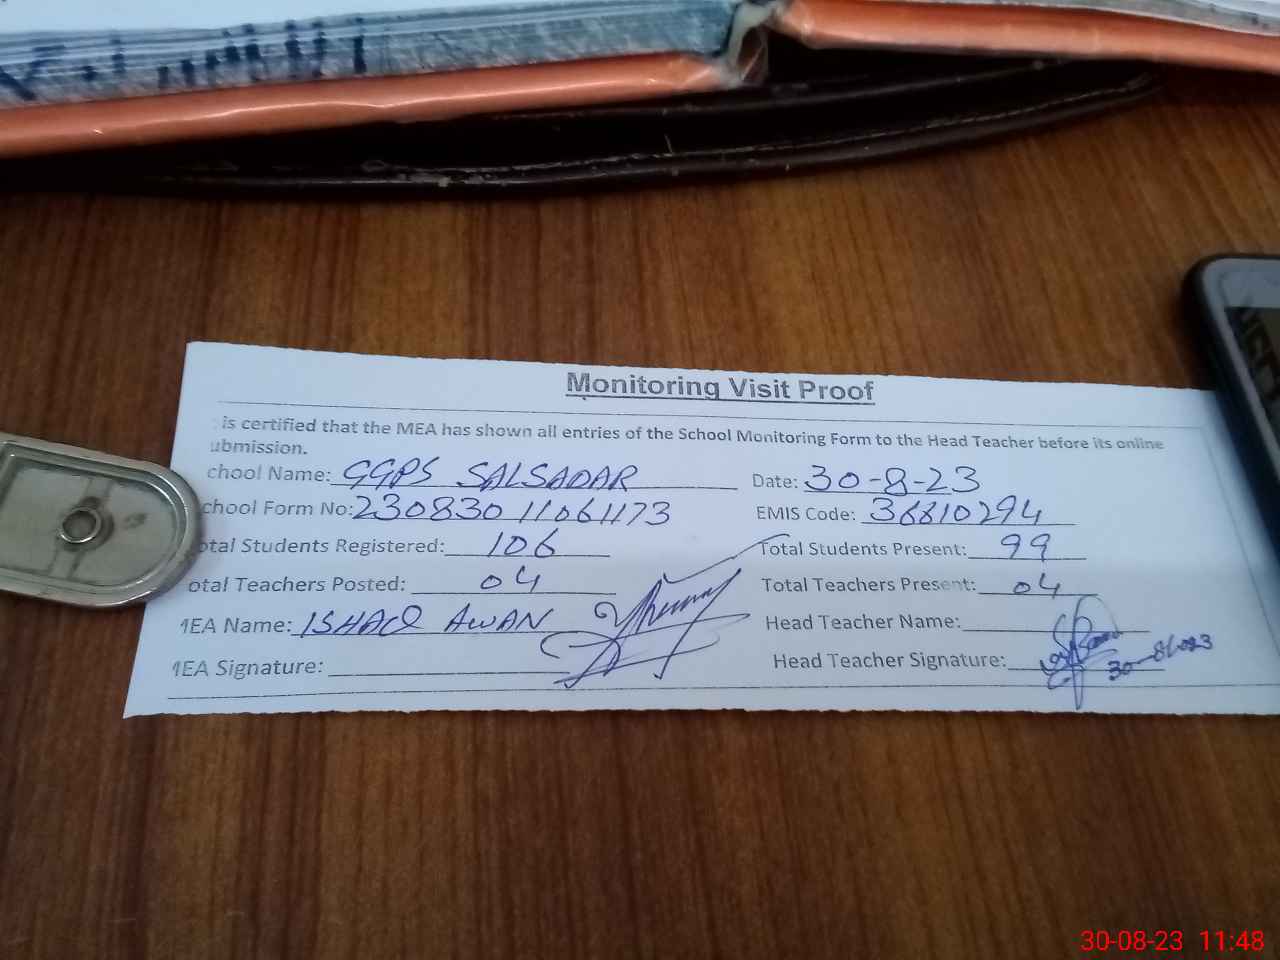 Monitoring Visit Proof
is certified that the MEA has shown all entries of the School Monitoring Form to the Head Teacher before its online
ubmission.
chool Name: GGPS SALSADAR Date: 30-8-23
chool Form No: 23083011061173 EMIS Code: 36810294
otal Students Registered: 106 Total Students Present: 99
otal Teachers Posted: 04 Total Teachers Present: 04
MEA Name: ISHAQ AWAN Head Teacher Name:
MEA Signature: Head Teacher Signature:
30-08-23 11:48